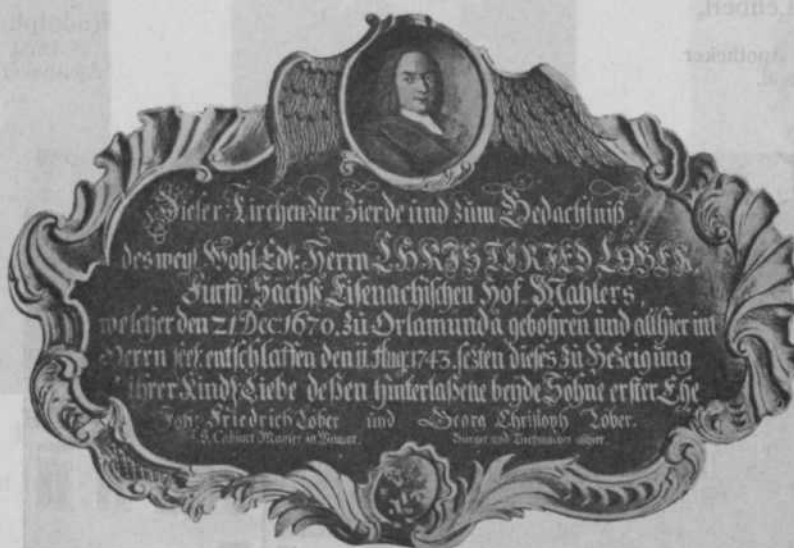 Dieser Kirchen zur Zierde und zum Gedächtniß
des weyl Wohl Edl: Herrn CHRIST FRIED LÖBER,
Fürstl: Sachß Eisenachischen Hof-Mahlers,
welcher den 21 Dec: 1670. zu Orlamunda gebohren und allhier im
Herrn seel: entschlaffen den 11. Aug. 1743. sezten dieses zu Bezeigung
ihrer Kindl: Liebe deßen hinterlaßene beyde Söhne erster Ehe
Joh: Friedrich Löber und Georg Christoph Löber.
Cabinet Mahler in Weimar. Bürger und Tuchmacher allhier.
Apotheker